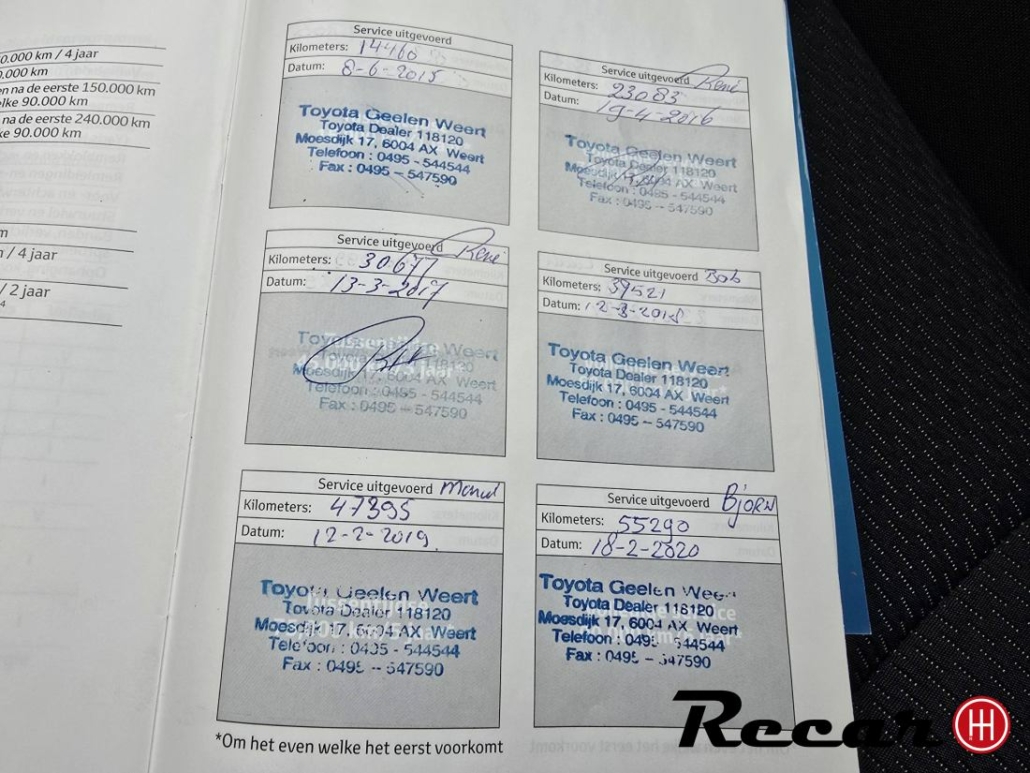 0.000 km / 4 jaar
0.000 km
en na de eerste 150.000 km
elke 90.000 km
na de eerste 240.000 km
ke 90.000 km
m
n / 4 jaar
/ 2 jaar
4
Service uitgevoerd
Kilometers: 14460
Datum: 8-6-2015
Toyota Geelen Weert
Toyota Dealer 118120
Moesdijk 17, 6004 AX Weert
Telefoon : 0495 - 544544
Fax : 0495 – 547590
Service uitgevoerd René
Kilometers: 23083
Datum: 19-4-2016
Toyota Geelen Weert
Toyota Dealer 118120
Moesdijk 17, 6004 AX Weert
Telefoon : 0495 - 544544
Fax : 0495 – 547590
Service uitgevoerd René
Kilometers: 30677
Datum: 13-3-2017
Toyota Geelen Weert
Toyota Dealer 118120
Moesdijk 17, 6004 AX Weert
Telefoon : 0495 - 544544
Fax : 0495 – 547590
Service uitgevoerd Bob
Kilometers: 39521
Datum: 12-3-2018
Toyota Geelen Weert
Toyota Dealer 118120
Moesdijk 17, 6004 AX Weert
Telefoon : 0495 - 544544
Fax : 0495 – 547590
Service uitgevoerd
Kilometers: 47395
Datum: 12-2-2019
Toyota Geelen Weert
Toyota Dealer 118120
Moesdijk 17, 6004 AX Weert
Telefoon : 0495 - 544544
Fax : 0495 – 547590
Service uitgevoerd Bjorn
Kilometers: 55290
Datum: 18-2-2020
Toyota Geelen Weert
Toyota Dealer 118120
Moesdijk 17, 6004 AX Weert
Telefoon : 0495 - 544544
Fax : 0495 – 547590
*Om het even welke het eerst voorkomt
Recar H